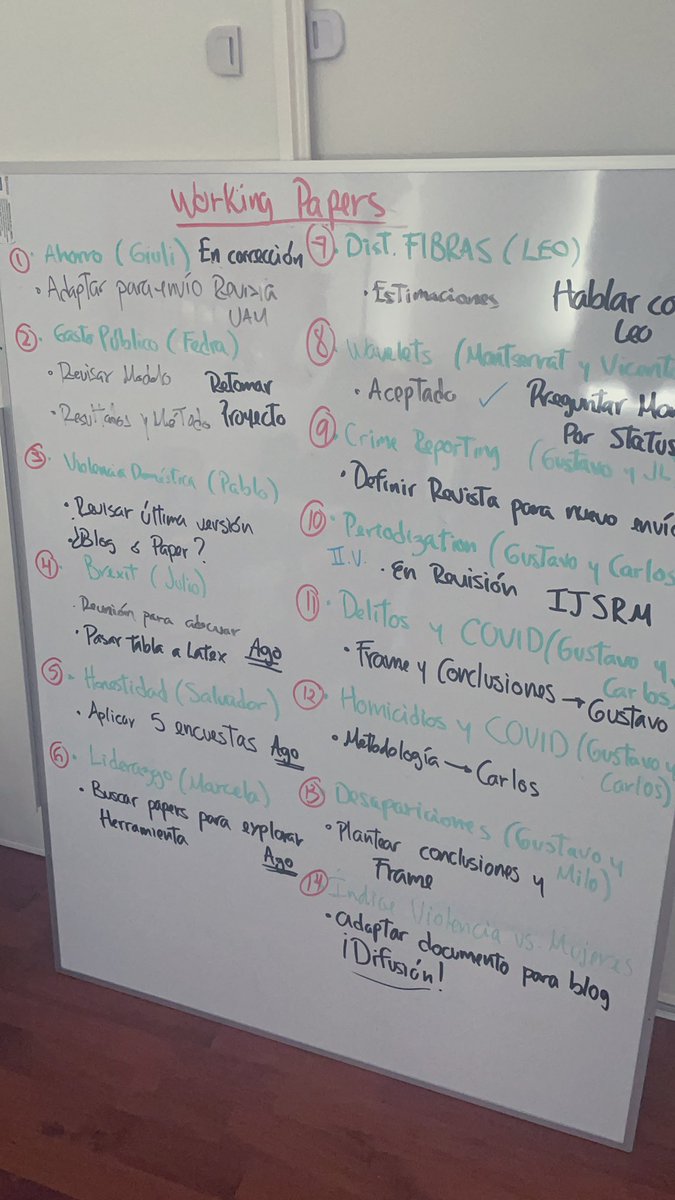 Working Papers
① Ahorro (Giuli) En corrección
• Adaptar para envío Revista
UAM
② Gasto Público (Fedra)
• Revisar Modelo Retomar
• Resultados y Método Proyecto
③ Violencia Doméstica (Pablo)
• Revisar última versión
• ¿Blog ó Paper?
④ Brexit (Julio)
• Reunión para adecuar
• Pasar tabla a Latex Ago
⑤ • Honestidad (Salvador)
• Aplicar 5 encuestas Ago
⑥ • Liderazgo (Marcela)
• Buscar papers para explorar
Herramienta Ago
⑦ • Dist. FIBRAS (LEO)
• Estimaciones Hablar co
Leo
⑧ Wavelets (Montserrat y Vicent
• Aceptado ✓ Preguntar Mo
Por Status
⑨ Crime Reporting (Gustavo y JL
• Definir Revista para nuevo enví
⑩ • Periodization (Gustavo y Carlos
II.V. • En Revisión IJSRM
⑪ • Delitos y COVID (Gustavo y
Carlos)
• Frame y Conclusiones → Gustavo
⑫ • Homicidios y COVID (Gustavo y
Carlos)
• Metodología → Carlos
⑬ Desapariciones (Gustavo y
Milo)
• Plantear conclusiones y
Frame
⑭ Índice Violencia vs. Mujeres
• adaptar documento para blog
¡Difusión!